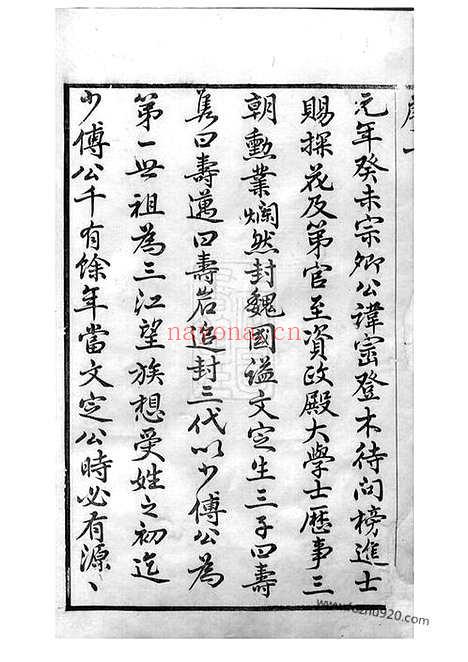 序一
元年癸未宗卿公諱崈登木待問榜進士
賜探花及第官至資政殿大學士歷事三
朝勳業爛然封魏國謚文定生三子曰壽
雋曰壽邁曰壽岩追封三代以少傅公為
第一世祖為三江望族想受姓之初迄
少傅公千有餘年當文定公時必有源〻
nayona.cn
www.fozhu920.com